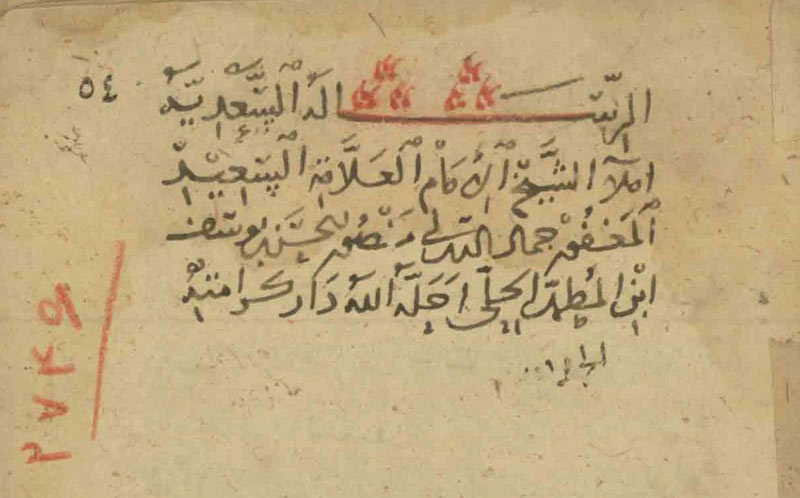 ٥٤
الرسالة السعدية
املاء الشيخ الإمام العلامة السعيد
المغفور جمال الدين ابي منصور الحسن بن يوسف
ابن المطهر الحلي احله الله دار كرامته